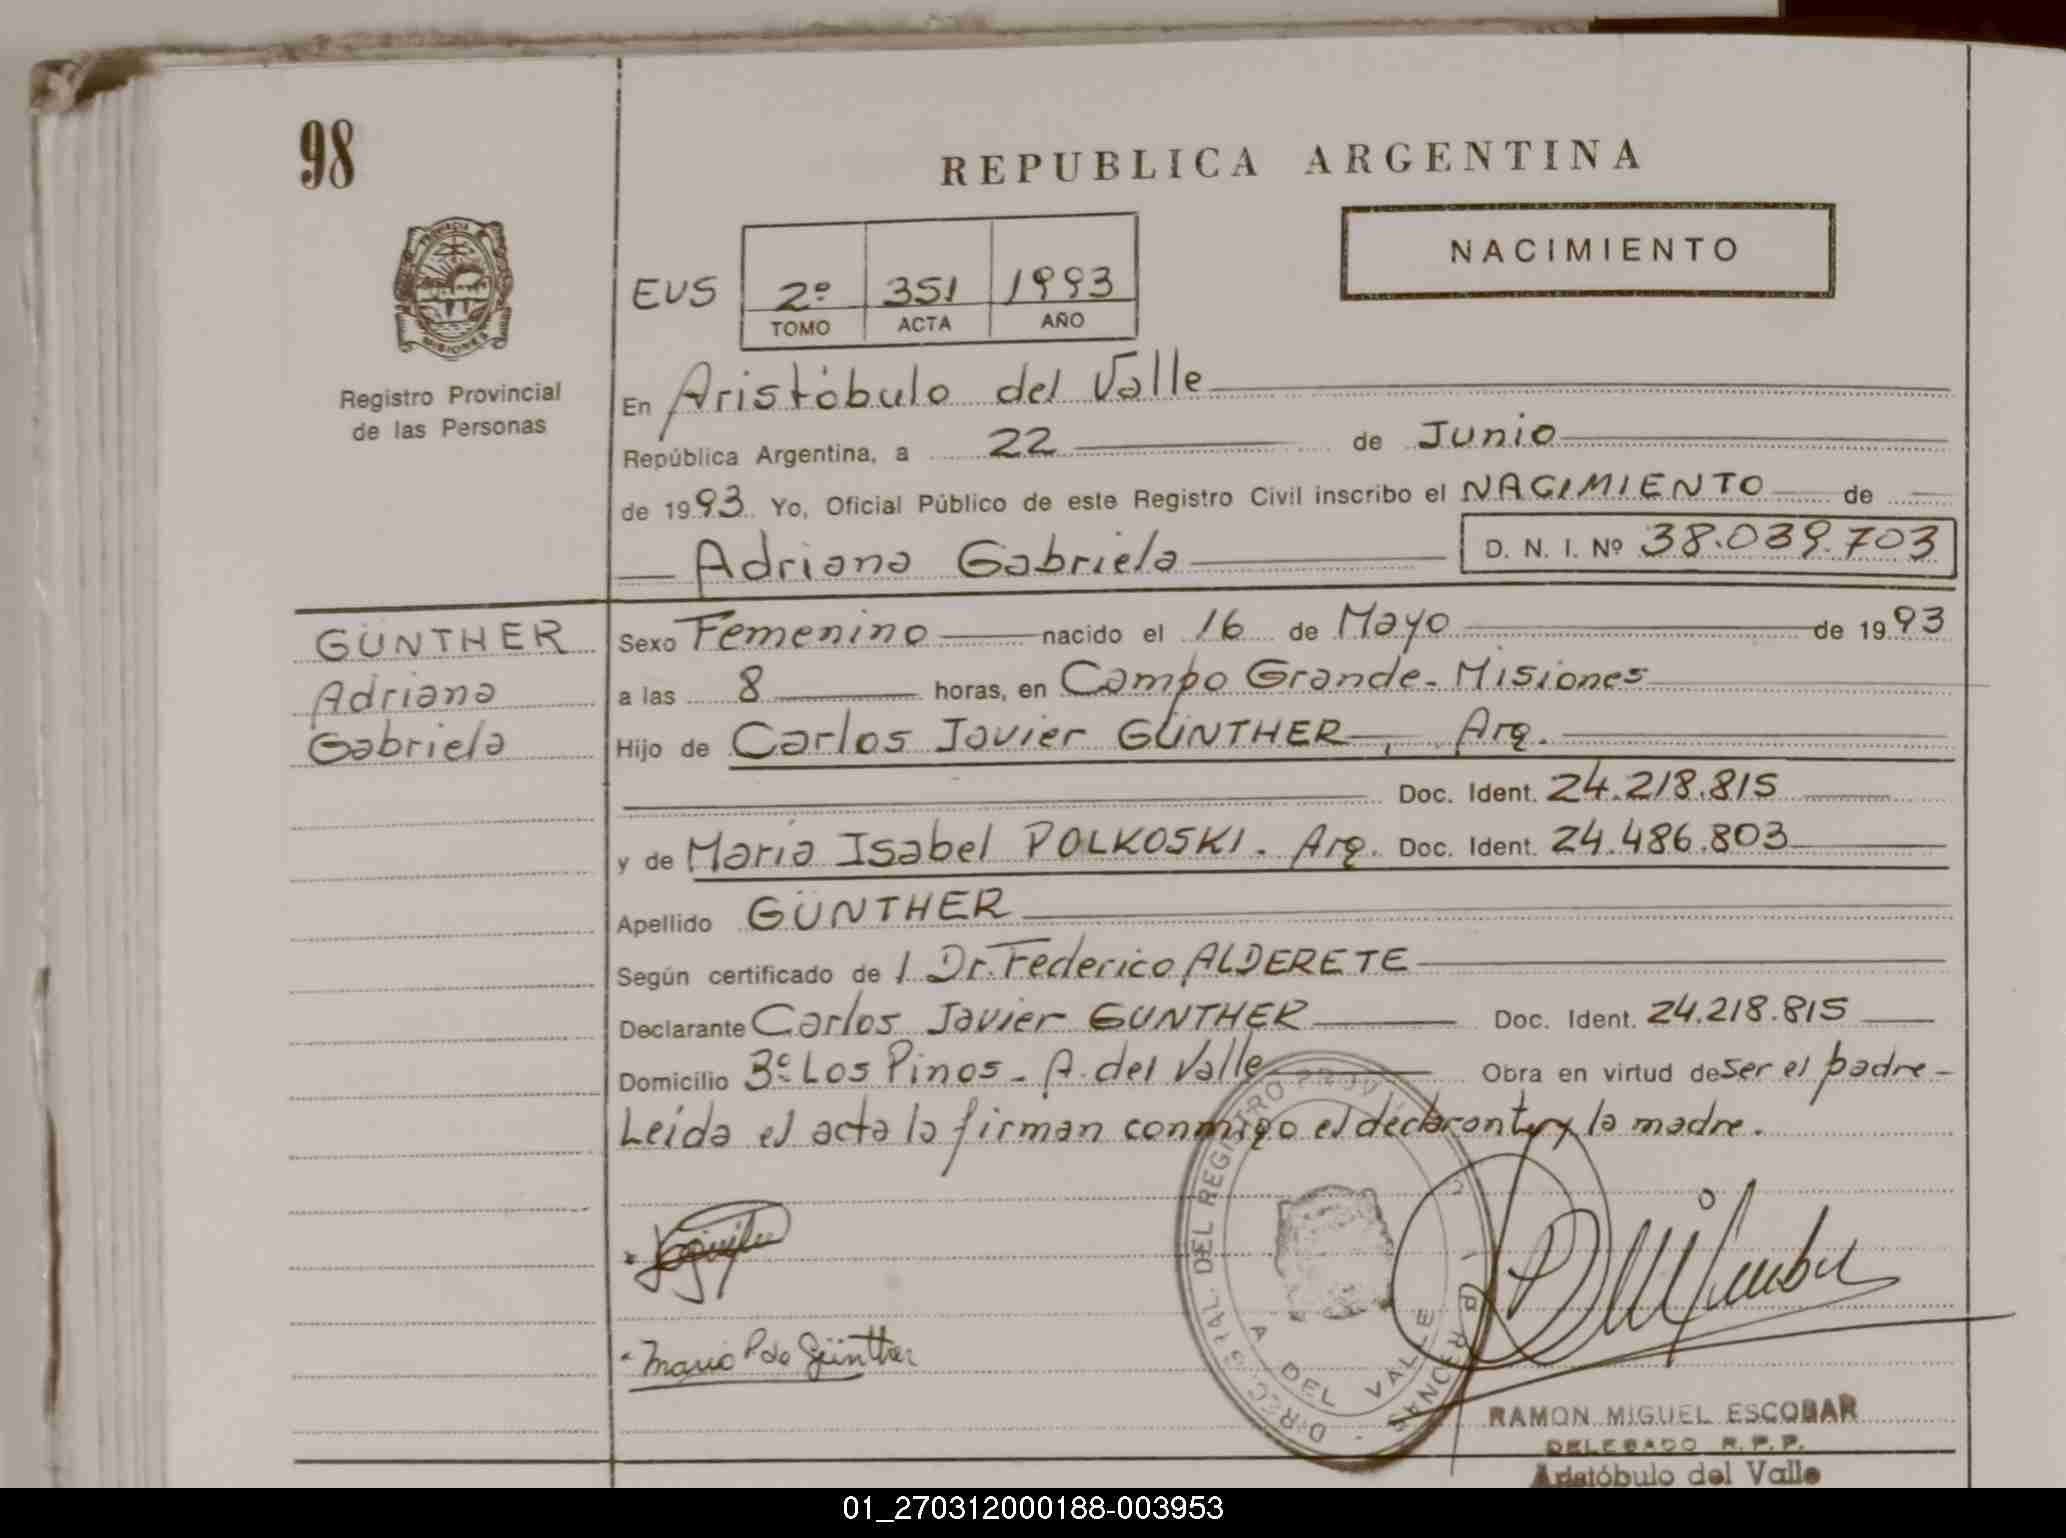 98
REPUBLICA ARGENTINA
NACIMIENTO
PROVINCIA
MISIONES
Registro Provincial
de las Personas
EUS 2º 351 1993
TOMO ACTA AÑO
En Aristóbulo del Valle
República Argentina, a 22 de Junio
de 1993 Yo, Oficial Público de este Registro Civil inscribo el NACIMIENTO de
Adriana Gabriela D. N. I. Nº 38.039.703
GÜNTHER
Adriana
Gabriela
Sexo Femenino nacido el 16 de Mayo de 1993
a las 8 horas, en Campo Grande - Misiones
Hijo de Carlos Javier GÜNTHER, Arg.
Doc. Ident. 24.218.815
y de María Isabel POLKOSKI. Arg. Doc. Ident. 24.486.803
Apellido GÜNTHER
Según certificado de 1 Dr. Federico ALDERETE
Declarante Carlos Javier GUNTHER Doc. Ident. 24.218.815
Domicilio Bº Los Pinos - A. del Valle Obra en virtud de ser el padre -
Leída el acta la firman conmigo el declarante y la madre.
Maria P de Günther
DIREC. GRAL. DEL REGISTRO PROV
A DEL VALLE
RAMON MIGUEL ESCOBAR
DELEGADO R. P. P.
Aristóbulo del Valle
01_270312000188-003953